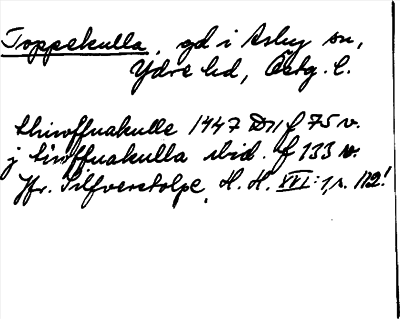 Toppekulla, gd i Asby sn,
Ydre hd, Östg. l.
thiwffuakulle 1447 D11 f 75 v.
j tiwffuakulla ibid. f 133 v.
Jfr. Silfverstolpe, H. H. XVI:1, s. 112!